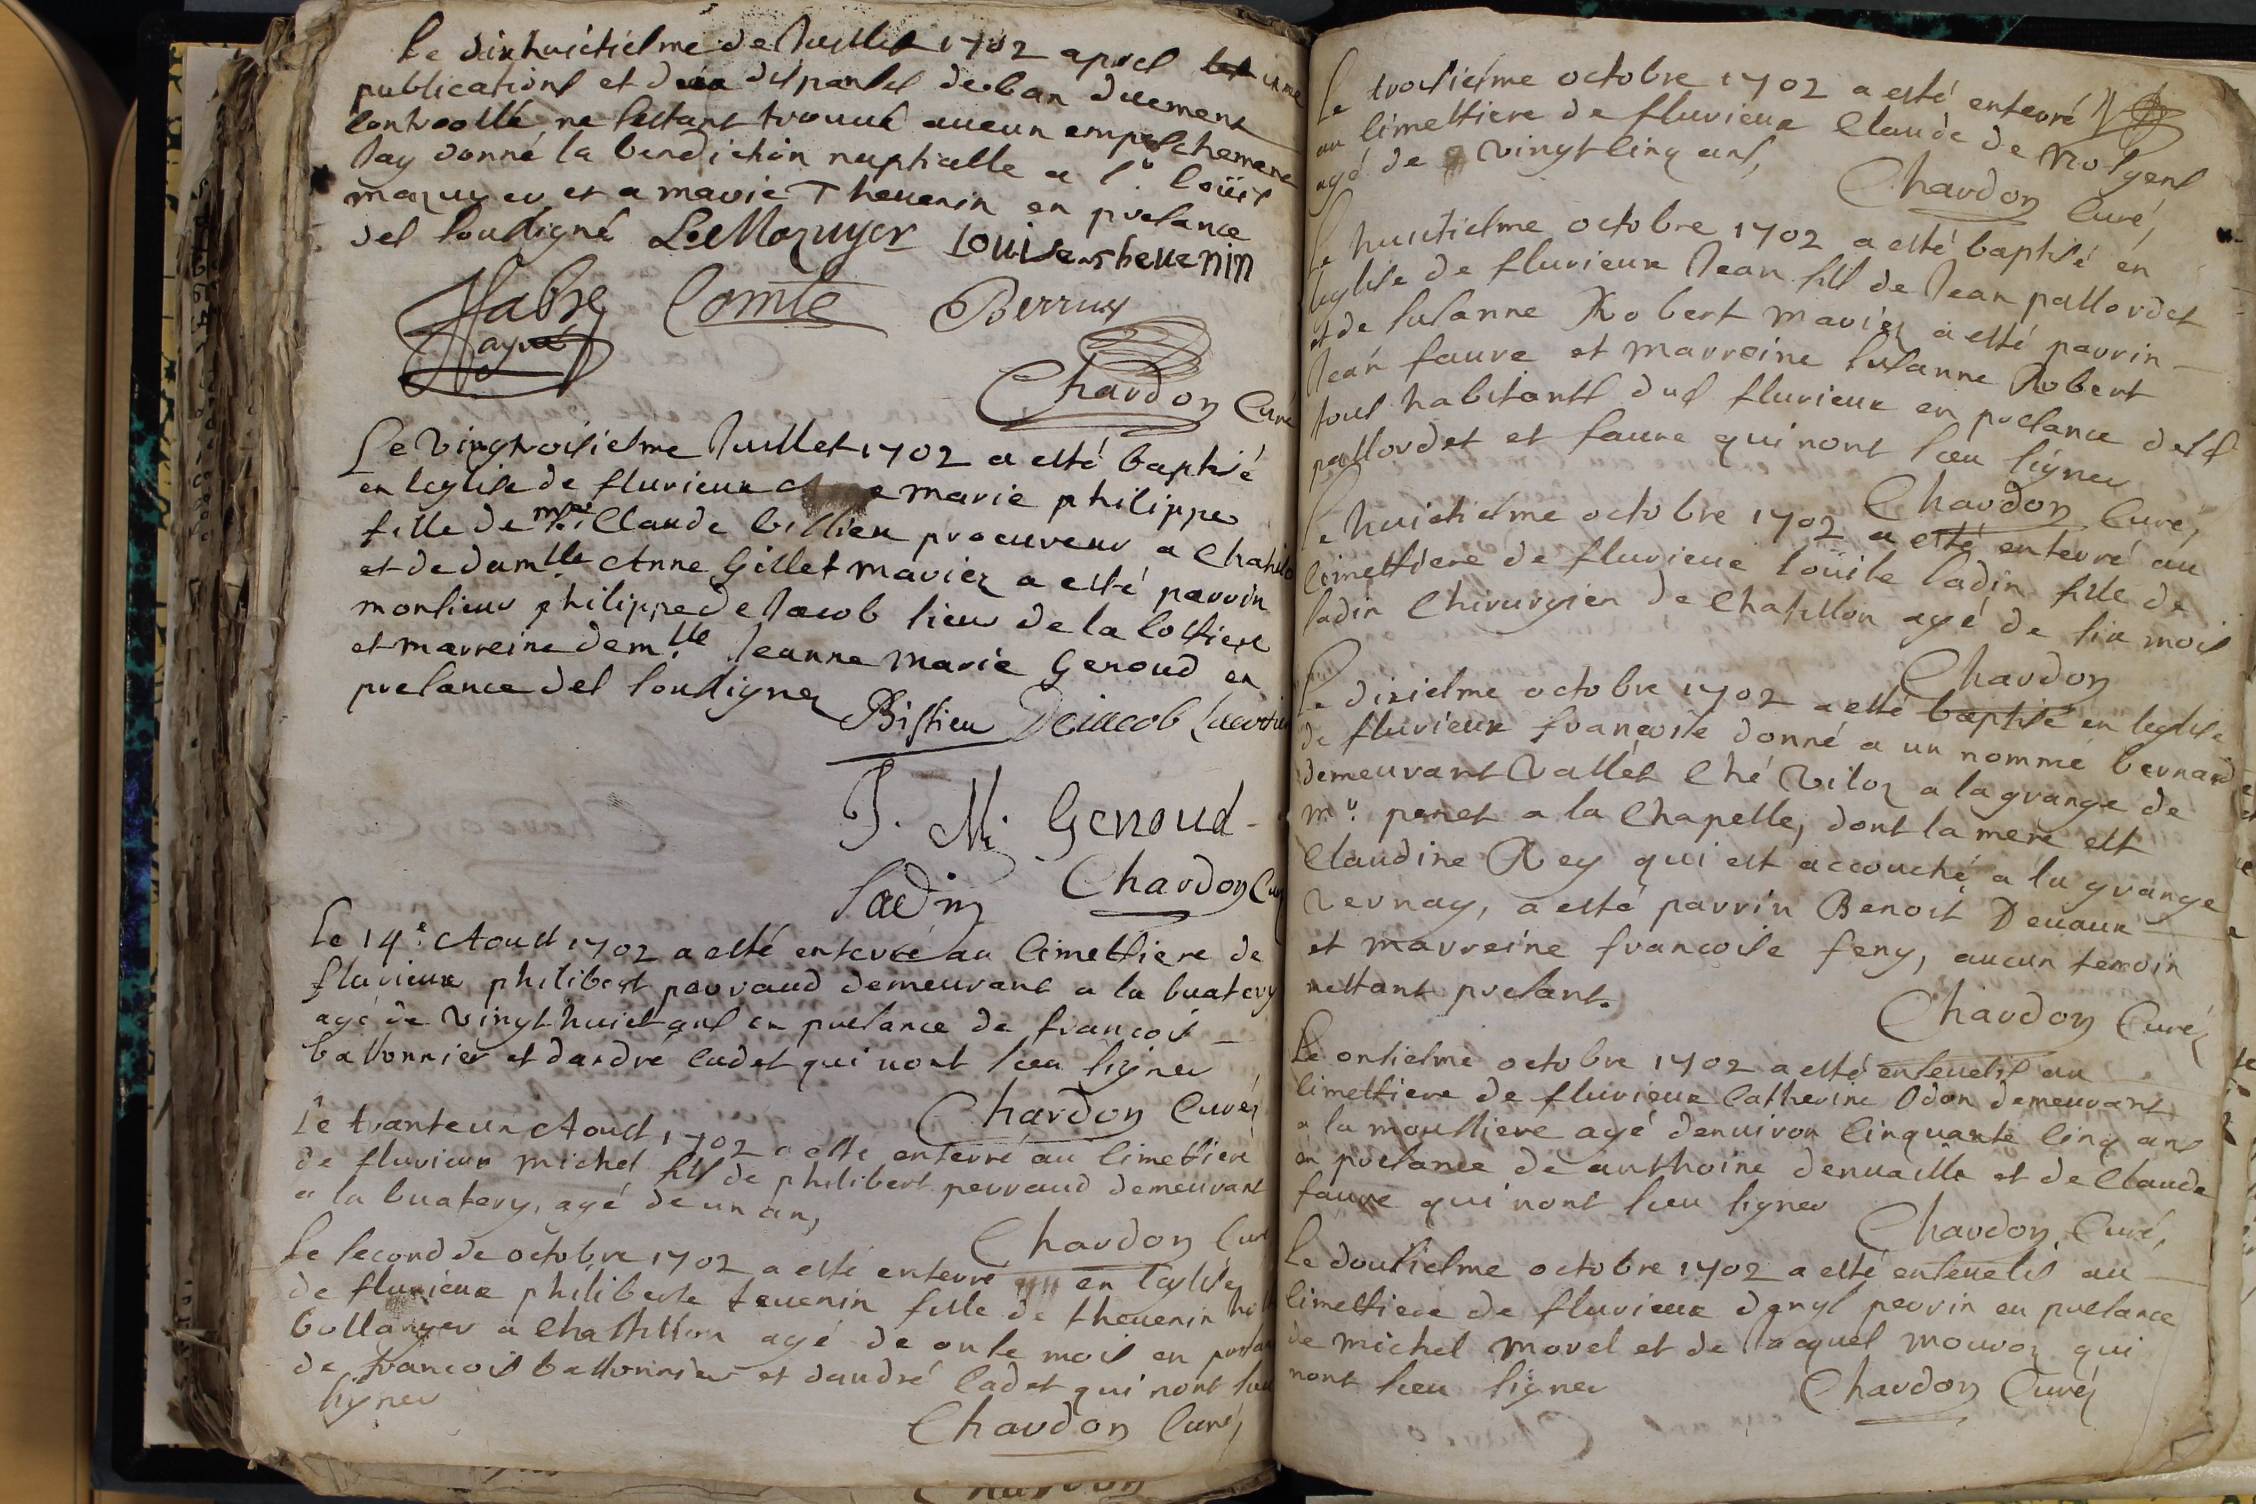 Le dixhuictiesme de Juillet 1702 apres une
publications et deux dispanses de ban duement
controollé ne sestant trouué aucun empeschement
Jay donné la benediction nuptialle a sr. Loüis
mazuyer et a marie Theuenin en presance
des soussigné LeMazuyer Louise theuenin
fabre Comte Berruy
Chardon Curé
Le vingtroisiesme Juillet 1702 a esté baptisé
en leglise de flurieux marie philippe
fille de Claude bissieu procureur a Chatillo
et de damlle Anne Gillet mariez a esté parrin
monsieur philippe de Jacob sieur de la cottiere
et marreine demlle Jeanne marie Genoud en
presance des soussignez Bissieu DeJacob Lacottier
J. M. Genoud
Ladin Chardon Cu
Le 14e. Aoust 1702 a esté enterré au Cimettiere de
flurieux philibert perraud demeurant a la buatery
agé de vingt huict ans en presance de francois
battonnier et dandré cadet qui nont sceu signer
Chardon Curé
Le tranteun Aoust 1702 a esté enterré au Cimettiere
de flurieux michel fils de philibert perraud demeurant
a la buatery, agé de un an,
Chardon Curé
Le second de octobre 1702 a esté enterré en leglise
de flurieux philiberte teuenin fille de theuenin
bollanger a Chastillon agé de onse mois en presan
de francois battonnier et dandré Cadet qui nont sceu
signer
Chardon Curé
Le troisiesme octobre 1702 a esté enterré
au Cimettiere de flurieux Claude de Nosgent
agé de vingt cinq ans,
Chardon Curé
Le huictiesme octobre 1702 a esté baptisé en
leglise de flurieux Jean fils de Jean pattordet
et de susanne Robert mariez a esté parrin
Jean faure et marreine susanne Robert
tous habitants dud flurieux en presance desd
pattordet et faure qui nont sceu signer
Chardon Curé,
Le huictiesme octobre 1702 a esté enterré au
Cimettiere de flurieux Loüise Ladin fille de
Ladin Chirurgien de Chatillon agé de six mois
Chardon
Le dixiesme octobre 1702 a esté baptisé en leglise
de flurieux francoise donné a un nommé bernard
demeurant vallet Ché viloz a la grange de
mr. penet a la Chapelle, dont la mere est
Claudine Rey qui est accouché a la grange
vernay, a esté parrin Benoist Deuaux
et marreine francoise feny, aucun temoin
nestant presant.
Chardon Curé
Le onsiesme octobre 1702 a esté enseuelis au
Cimettiere de flurieux Catherine Odon demeurant
a la moussiere agé denuiron Cinquante Cinq ans
en presance de anthoine denuaille et de Claude
faure qui nont sceu signer
Chardon Curé,
Le dousiesme octobre 1702 a esté enseuelis au
Cimettiere de flurieux denys perrin en presance
de michel morel et de Jacques mouroz qui
nont sceu signer
Chardon Curé